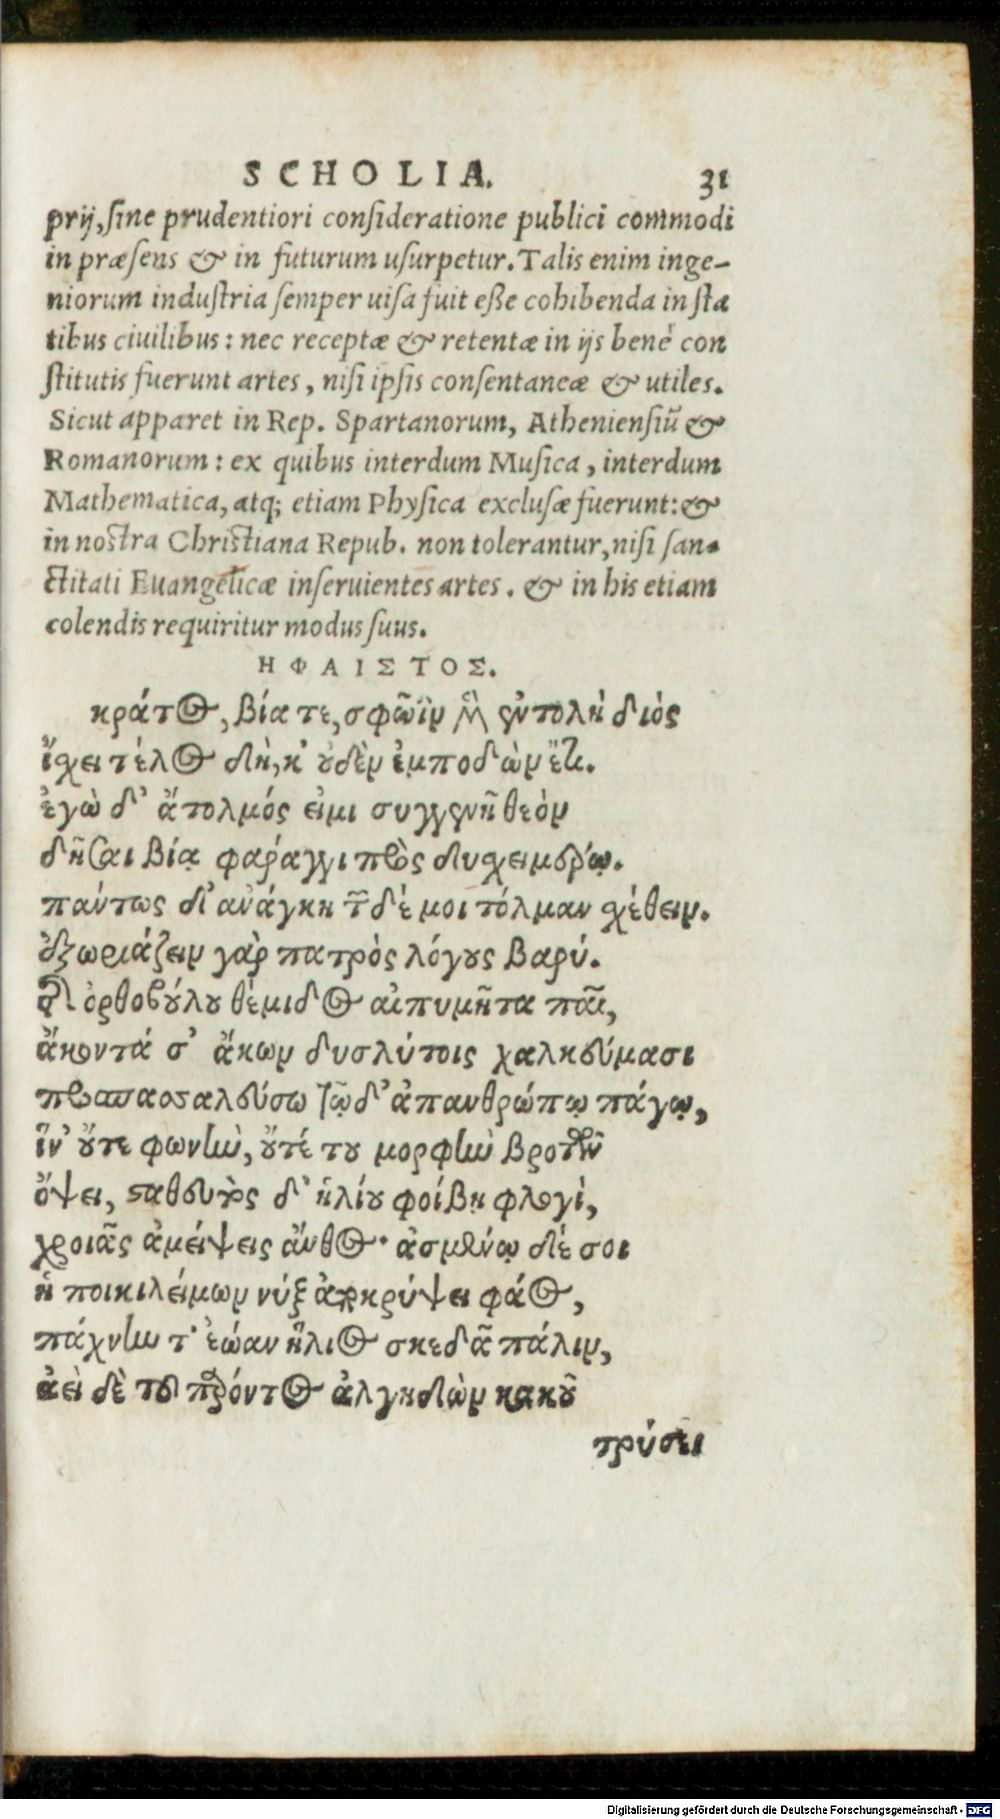 SCHOLIA. 31
prij, sine prudentiori consideratione publici commodi
in præsens & in futurum usurpetur. Talis enim inge-
niorum industria semper uisa fuit esse cohibenda in sta
tibus ciuilibus: nec receptæ & retentæ in ijs benè con
stitutis fuerunt artes, nisi ipsis consentaneæ & utiles.
Sicut apparet in Rep. Spartanorum, Atheniensiũ &
Romanorum: ex quibus interdum Musica, interdum
Mathematica, atq; etiam Physica exclusæ fuerunt: &
in nostra Christiana Repub. non tolerantur, nisi san-
ctitati Euangelicæ inseruientes artes. & in his etiam
colendis requiritur modus suus.
ΗΦΑΙΣΤΟΣ.
κράτος, βία τε, σφῶϊν μὲν ἐντολὴ διὸς
ἔχει τέλος δὴ, κ' οὐδὲν ἐμποδὼν ἔτι.
ἐγὼ δ' ἄτολμός εἰμι συγγενῆ θεὸν
δῆσαι βίᾳ φαράγγι πρὸς δυσχειμέρῳ.
πάντως δ' ἀνάγκη τῶνδέ μοι τόλμαν σχέθειν.
ἐξωριάζειν γὰρ πατρὸς λόγους βαρύ.
τῆς ὀρθοβούλου θέμιδος αἰπυμῆτα παῖ,
ἄκοντά σ' ἄκων δυσλύτοις χαλκεύμασι
προσπασσαλεύσω τῷδ' ἀπανθρώπῳ πάγῳ,
ἵν' οὔτε φωνὴν, οὔτέ του μορφὴν βροτῶν
ὄψει, σταθευτὸς δ' ἡλίου φοίβῃ φλογὶ,
χροιᾶς ἀμείψεις ἄνθος· ἀσμένῳ δέ σοι
ἡ ποικιλείμων νὺξ ἀποκρύψει φάος,
πάχνην τ' ἑώαν ἥλιος σκεδᾷ πάλιν,
ἀεὶ δὲ τοῦ παρόντος ἀλγηδὼν κακοῦ
τρύσει
Digitalisierung gefördert durch die Deutsche Forschungsgemeinschaft - DFG